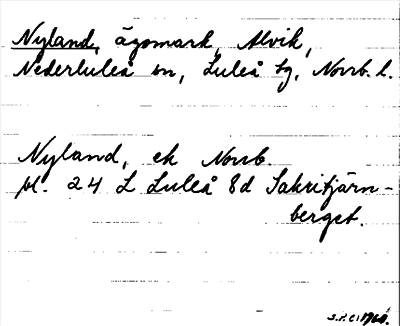 Nyland, ägomark, Alvik,
Nederluleå sn, Luleå tg, Norrb. l.
Nyland, ek Norrb.
bl. 24 L Luleå 8d Sakritjärn-
berget.
1960.